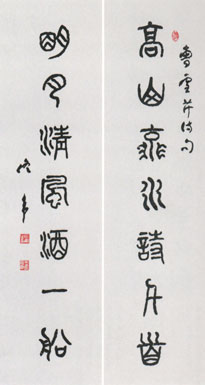 曹雪芹诗句
高山流水詩千首
明月清風酒一船